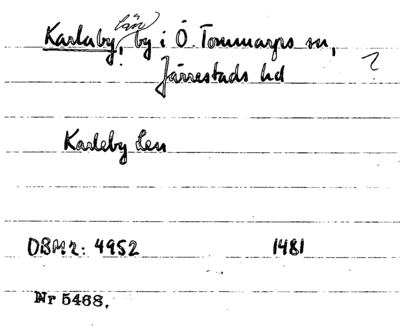 län
Karlaby, by i Ö. Tommarps sn,
Järrestads hd
Karleby Len
DBM 2: 4952 1481
Nr 5468.